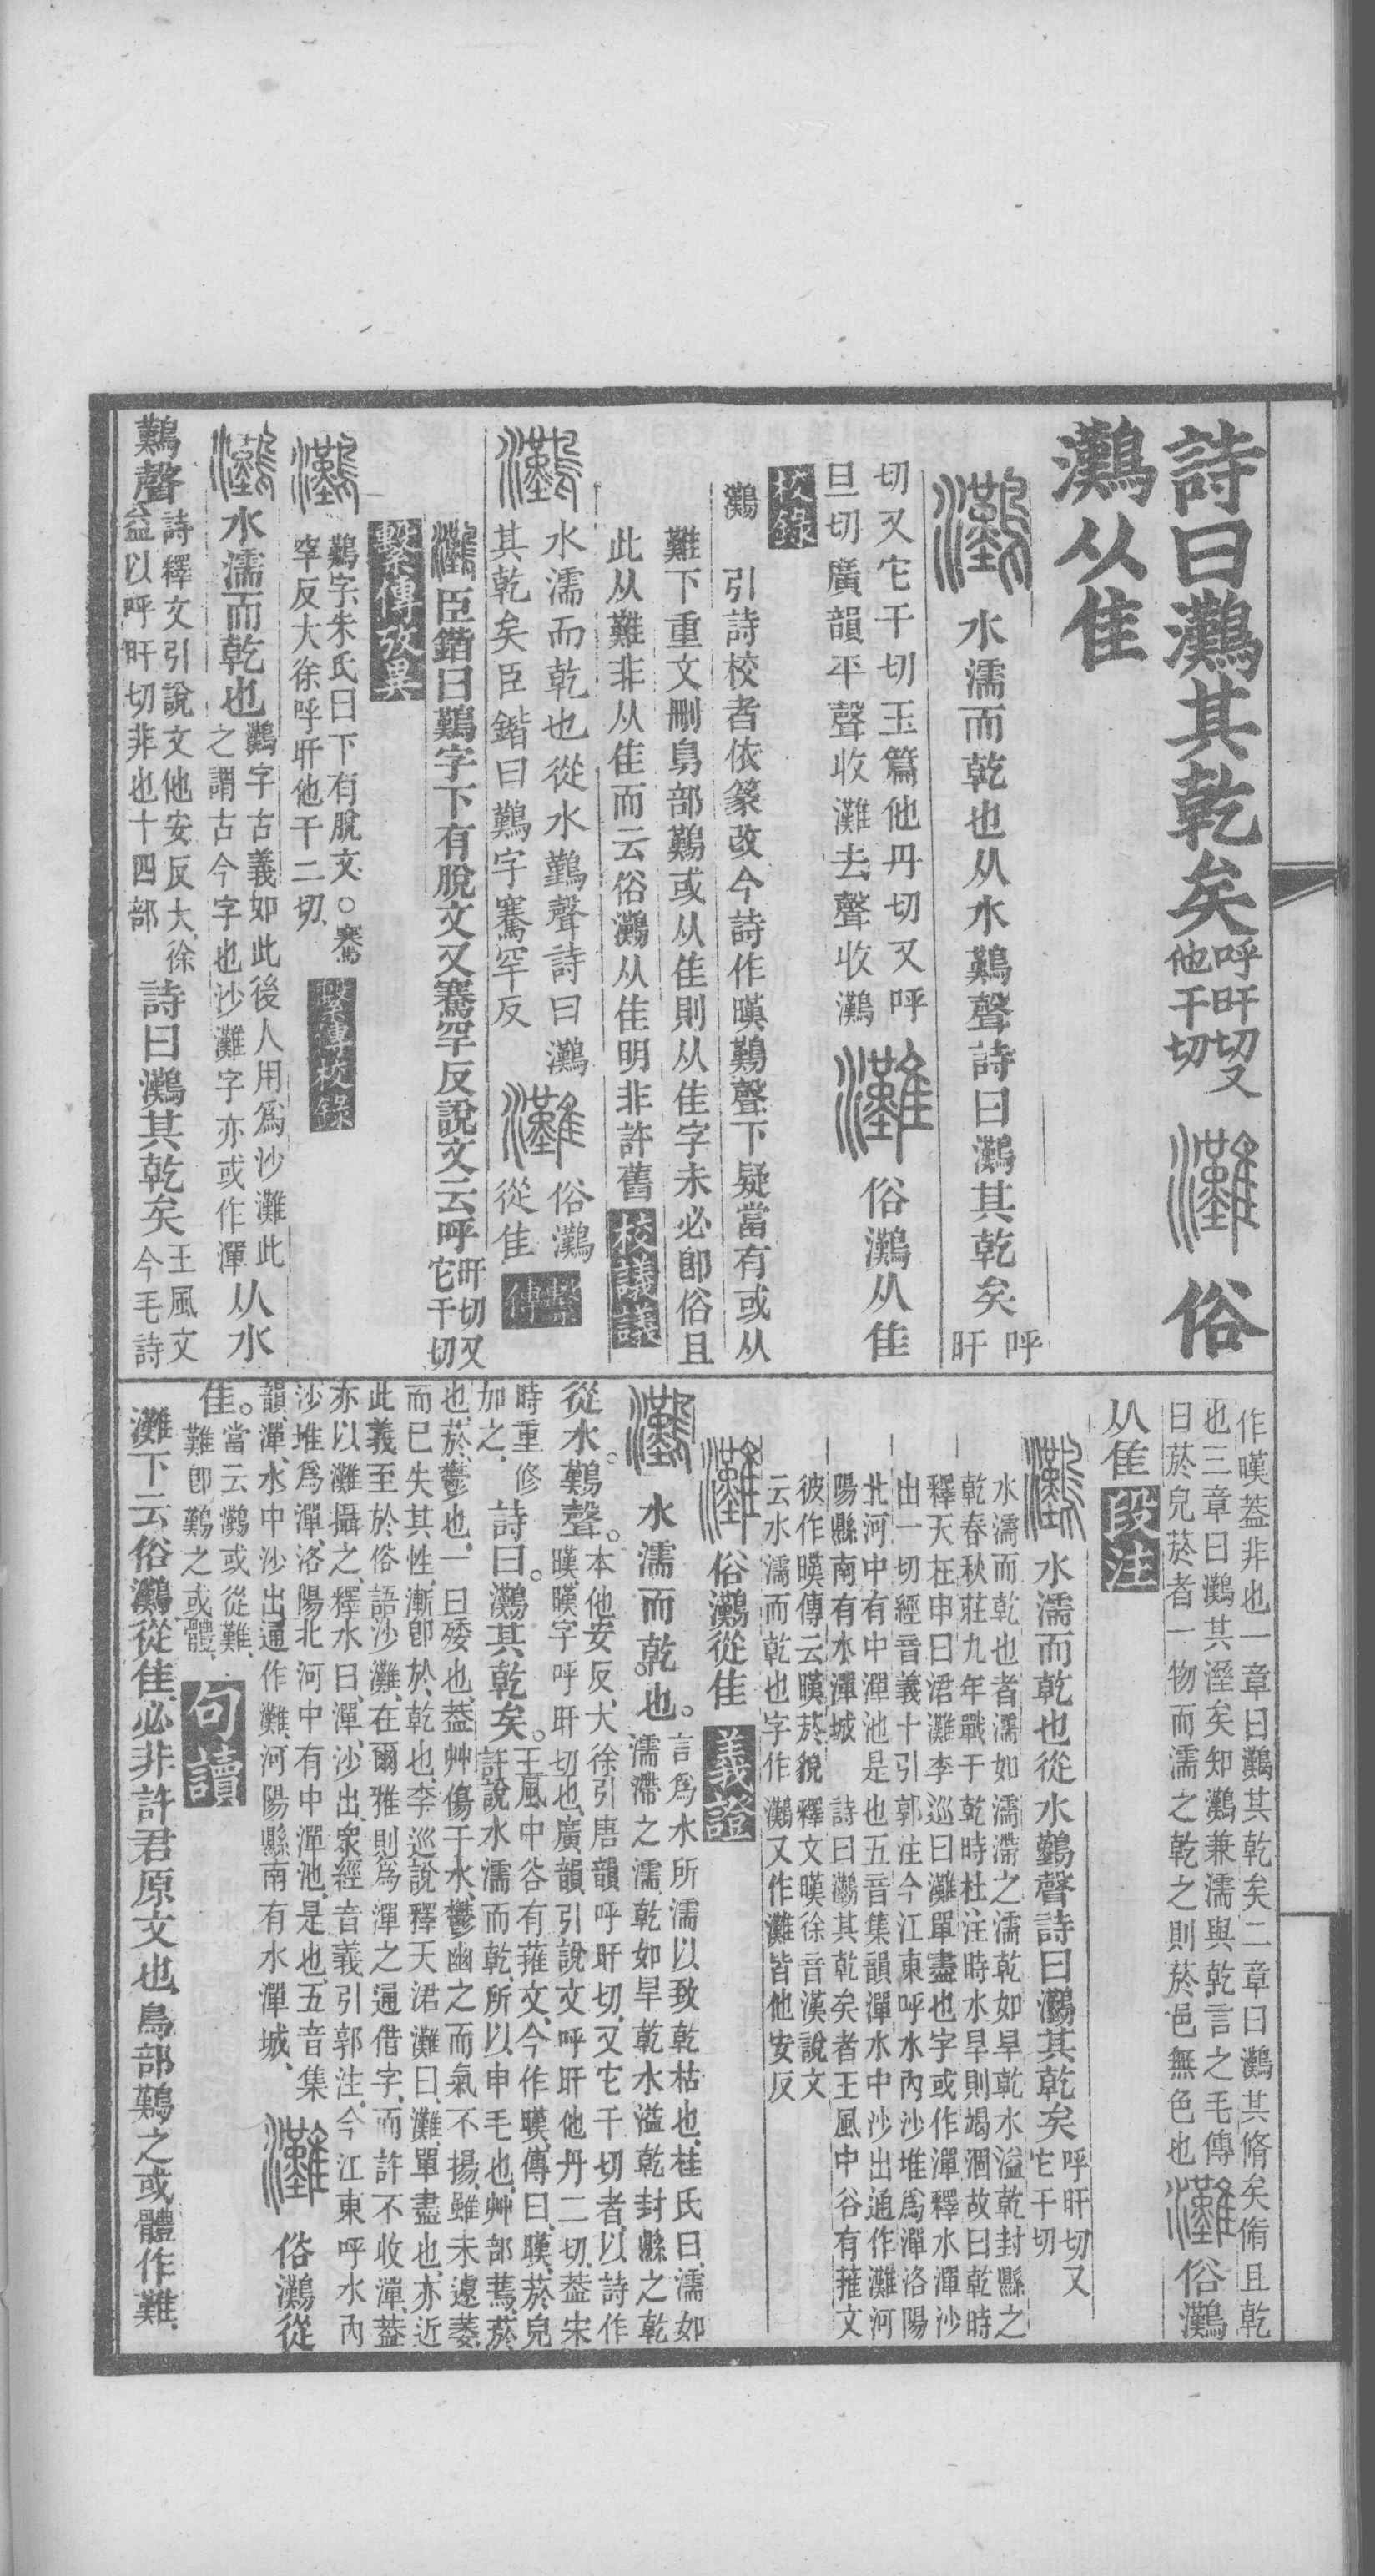 詩曰灘其乾矣呼旰切又他干切 灘 俗
灘从隹
灘 水濡而乾也从水鸛聲詩曰灘其乾矣呼旰
切又它干切玉篇他丹切又呼
旦切廣韻平聲收灘去聲收灘 灘 俗灘从隹
校錄
灘 引詩校者依篆改今詩作暵鷬聲下疑當有或从
難下重文刪鳥部鷬或从隹則从隹字未必卽俗且
此从難非从隹而云俗灘从隹明非許舊 校議議
灘 水濡而乾也從水鷬聲詩曰灘
其乾矣臣鍇曰鷬字騫罕反 灘 俗灘從隹 繫傳
灘臣鍇曰鷬字下有脫文又騫罕反說文云呼旰切又它干切
繫傳攷異
灘 鷬字朱氏曰下有脫文○騫
罕反大徐呼旰他干二切 繫傳校錄
灘水濡而乾也鷬字古義如此後人用爲沙灘此之謂古今字也沙灘字亦或作潬从水
鷬聲詩釋文引說文他安反大徐益以呼旰切非也十四部詩曰灘其乾矣王風文今毛詩
作嘆蓋非也一章曰鷬其乾矣二章曰灘其脩矣脩且乾
也三章曰灘其溼矣知灘兼濡與乾言之毛傳
曰菸皃菸者一物而濡之乾之則菸邑無色也 灘 俗灘
从隹 段注
灘 水濡而乾也從水鷬聲詩曰灘其乾矣呼旰切又它干切
水濡而乾也者濡如濡滯之濡乾如旱乾水溢乾封縣之
乾春秋莊九年戰于乾時杜注時水旱則竭涸故曰乾時
釋天在申曰涒灘李巡曰灘單盡也字或作潬釋水潬沙
出一切經音義十引郭注今江東呼水內沙堆爲潬洛陽
北河中有中潬池是也五音集韻潬水中沙出通作灘河
陽縣南有水潬城 詩曰灘其乾矣者王風中谷有蓷文
彼作暵傳云暵菸貌釋文暵徐音漢說文
云水濡而乾也字作灘又作灘皆他安反
灘 俗灘從隹 義證
灘 水濡而乾也。言爲水所濡以致乾枯也、桂氏曰、濡如濡滯之濡、乾如旱乾水溢乾封縣之乾
從水。鷬聲。本他安反、大徐引唐韻呼旰切、又它干切者、以詩作暵、暵字呼旰切也、廣韻引說文呼旰他丹二切、蓋宋
時重修加之、詩曰。灘其乾矣。王風中谷有蓷文、今作暵、傳曰、暵、菸皃許說水濡而乾、所以申毛也、艸部蔫、菸
也、菸、鬱也、一曰矮也、蓋艸傷于水、鬱幽之而氣不揚、雖未遽萎、
而已失其性、漸卽於乾也、李巡說釋天涒灘曰、灘、單盡也、亦近
此義至於俗語沙灘、在爾雅則爲潬之通借字、而許不收潬蓋
亦以灘攝之、釋水曰、潬、沙出、衆經音義引郭注、今江東呼水內
沙堆爲潬、洛陽北河中有中潬池、是也、五音集
韻、潬、水中沙出、通作灘、河陽縣南有水潬城、 灘 俗灘從
隹。當云灘或從難、難卽鷬之或體、 句讀
灘下云俗灘從隹必非許君原文也、鳥部鷬之或體作難、